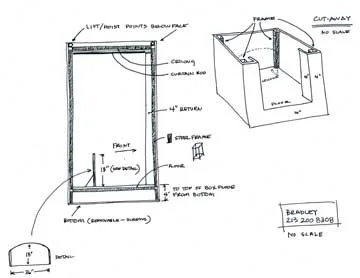 LIFT/HOIST POINTS BELOW FACE
CEILING
CURTAIN ROD
4" RETURN
FRONT
STEEL FRAME
18" (SEE DETAIL)
FLOOR
TO TOP OF BOX FLOOR
4' FROM BOTTOM
BOTTOM (REMOVABLE - SCREWS)
18"
36"
DETAIL
FRAME
CUT-AWAY
NO SCALE
FLOOR
4"
4"
BRADLEY
213 200 8308
NO SCALE